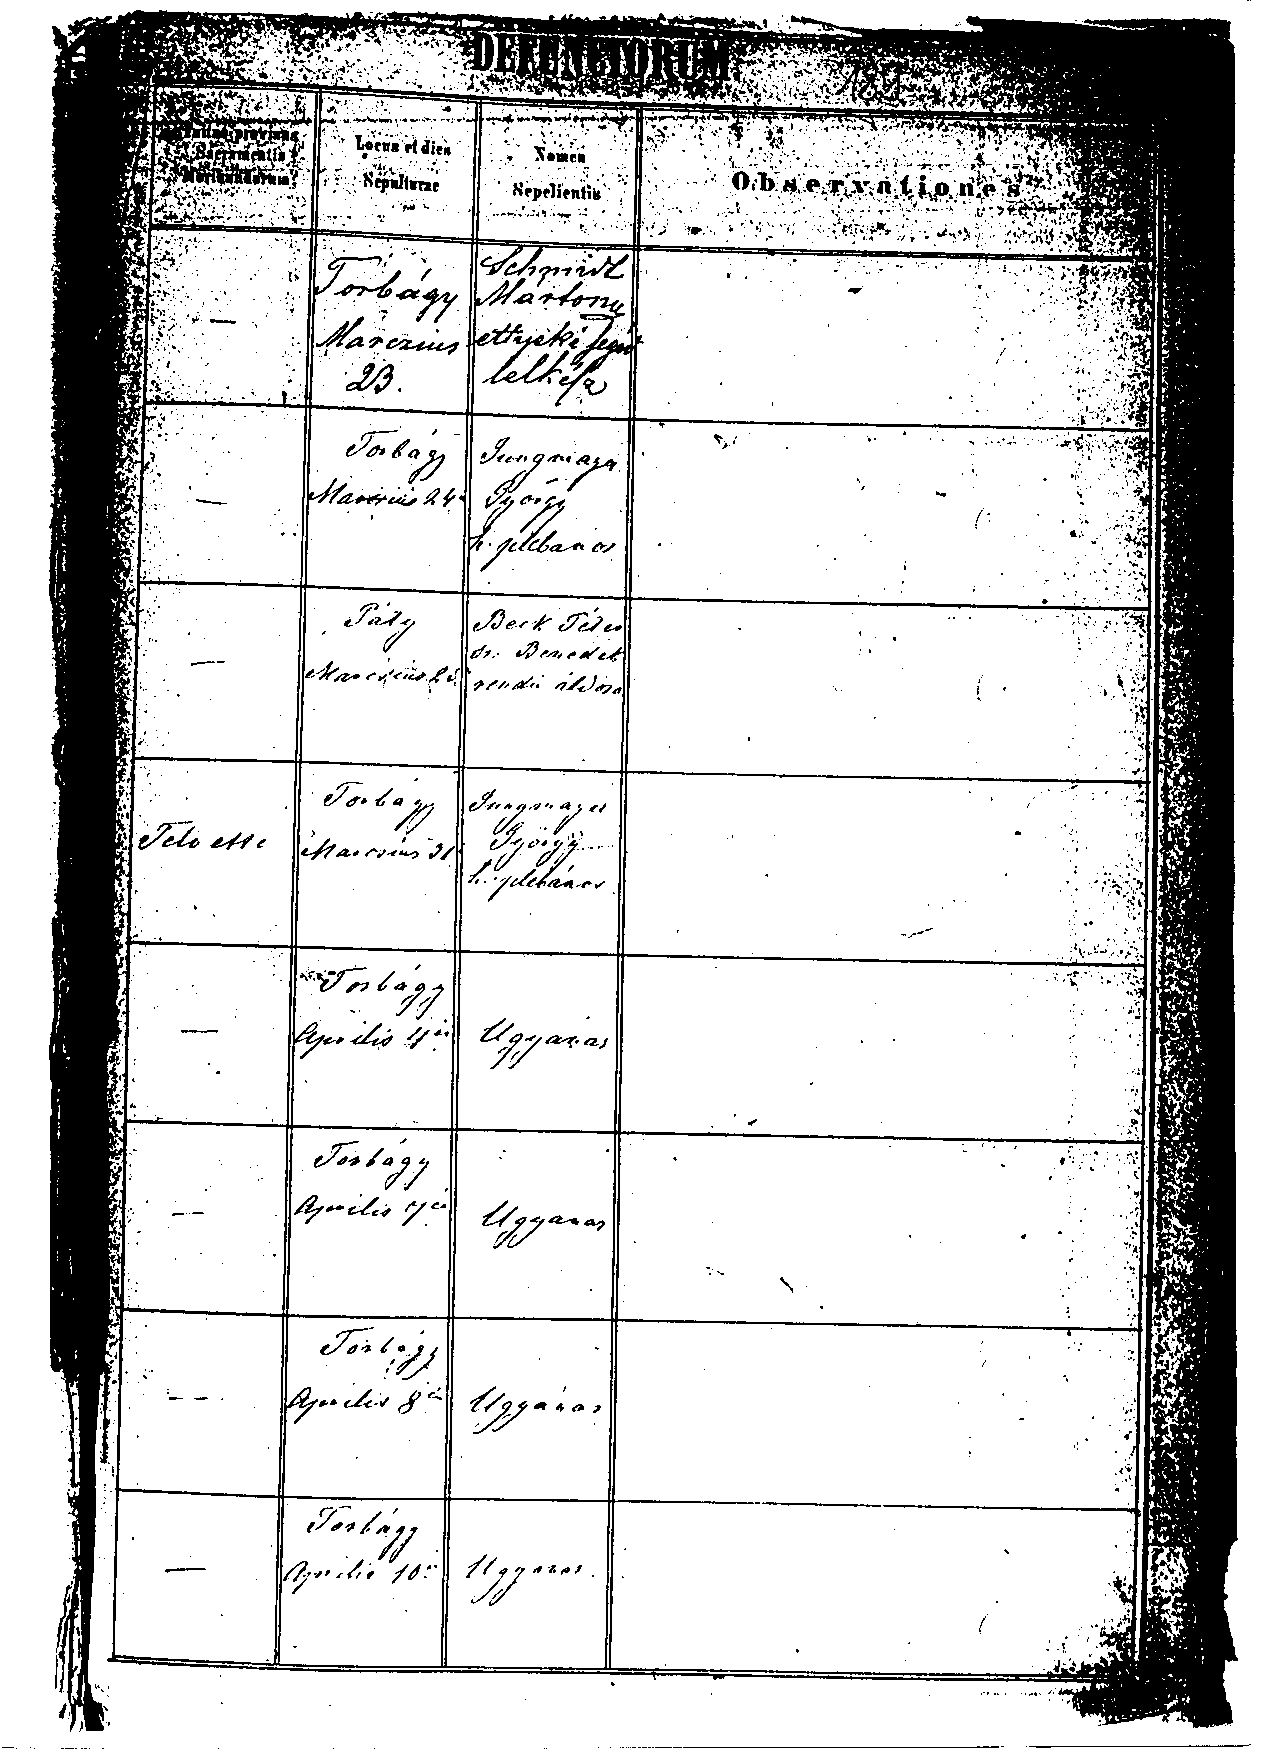 DEFUNCTORUM
praeviis
Sacramentis
Moribundorum
Locus et dies
Sepulturae
Nomen
Sepelientis
Observationes
Torbágy
Marczius
23.
Schmidt
Martony
ettyeki segéd
lelkész
—
Torbágy
Marczius 24
Jungmayer
György
h. plebanos
—
Páty
Marczius
Beck Péter
sz. Benedek
rendü áldozá
—
Torbágy
Marczius 31
Jungmayer
György
h. plebános
Torbágy
Aprilis 4én
Ugyanas
—
Torbágy
Aprilis 7én
Ugyanas
—
Torbágy
Aprilis 8
Ugyanas
—
Torbágy
Aprilis 10
Ugyanas
—